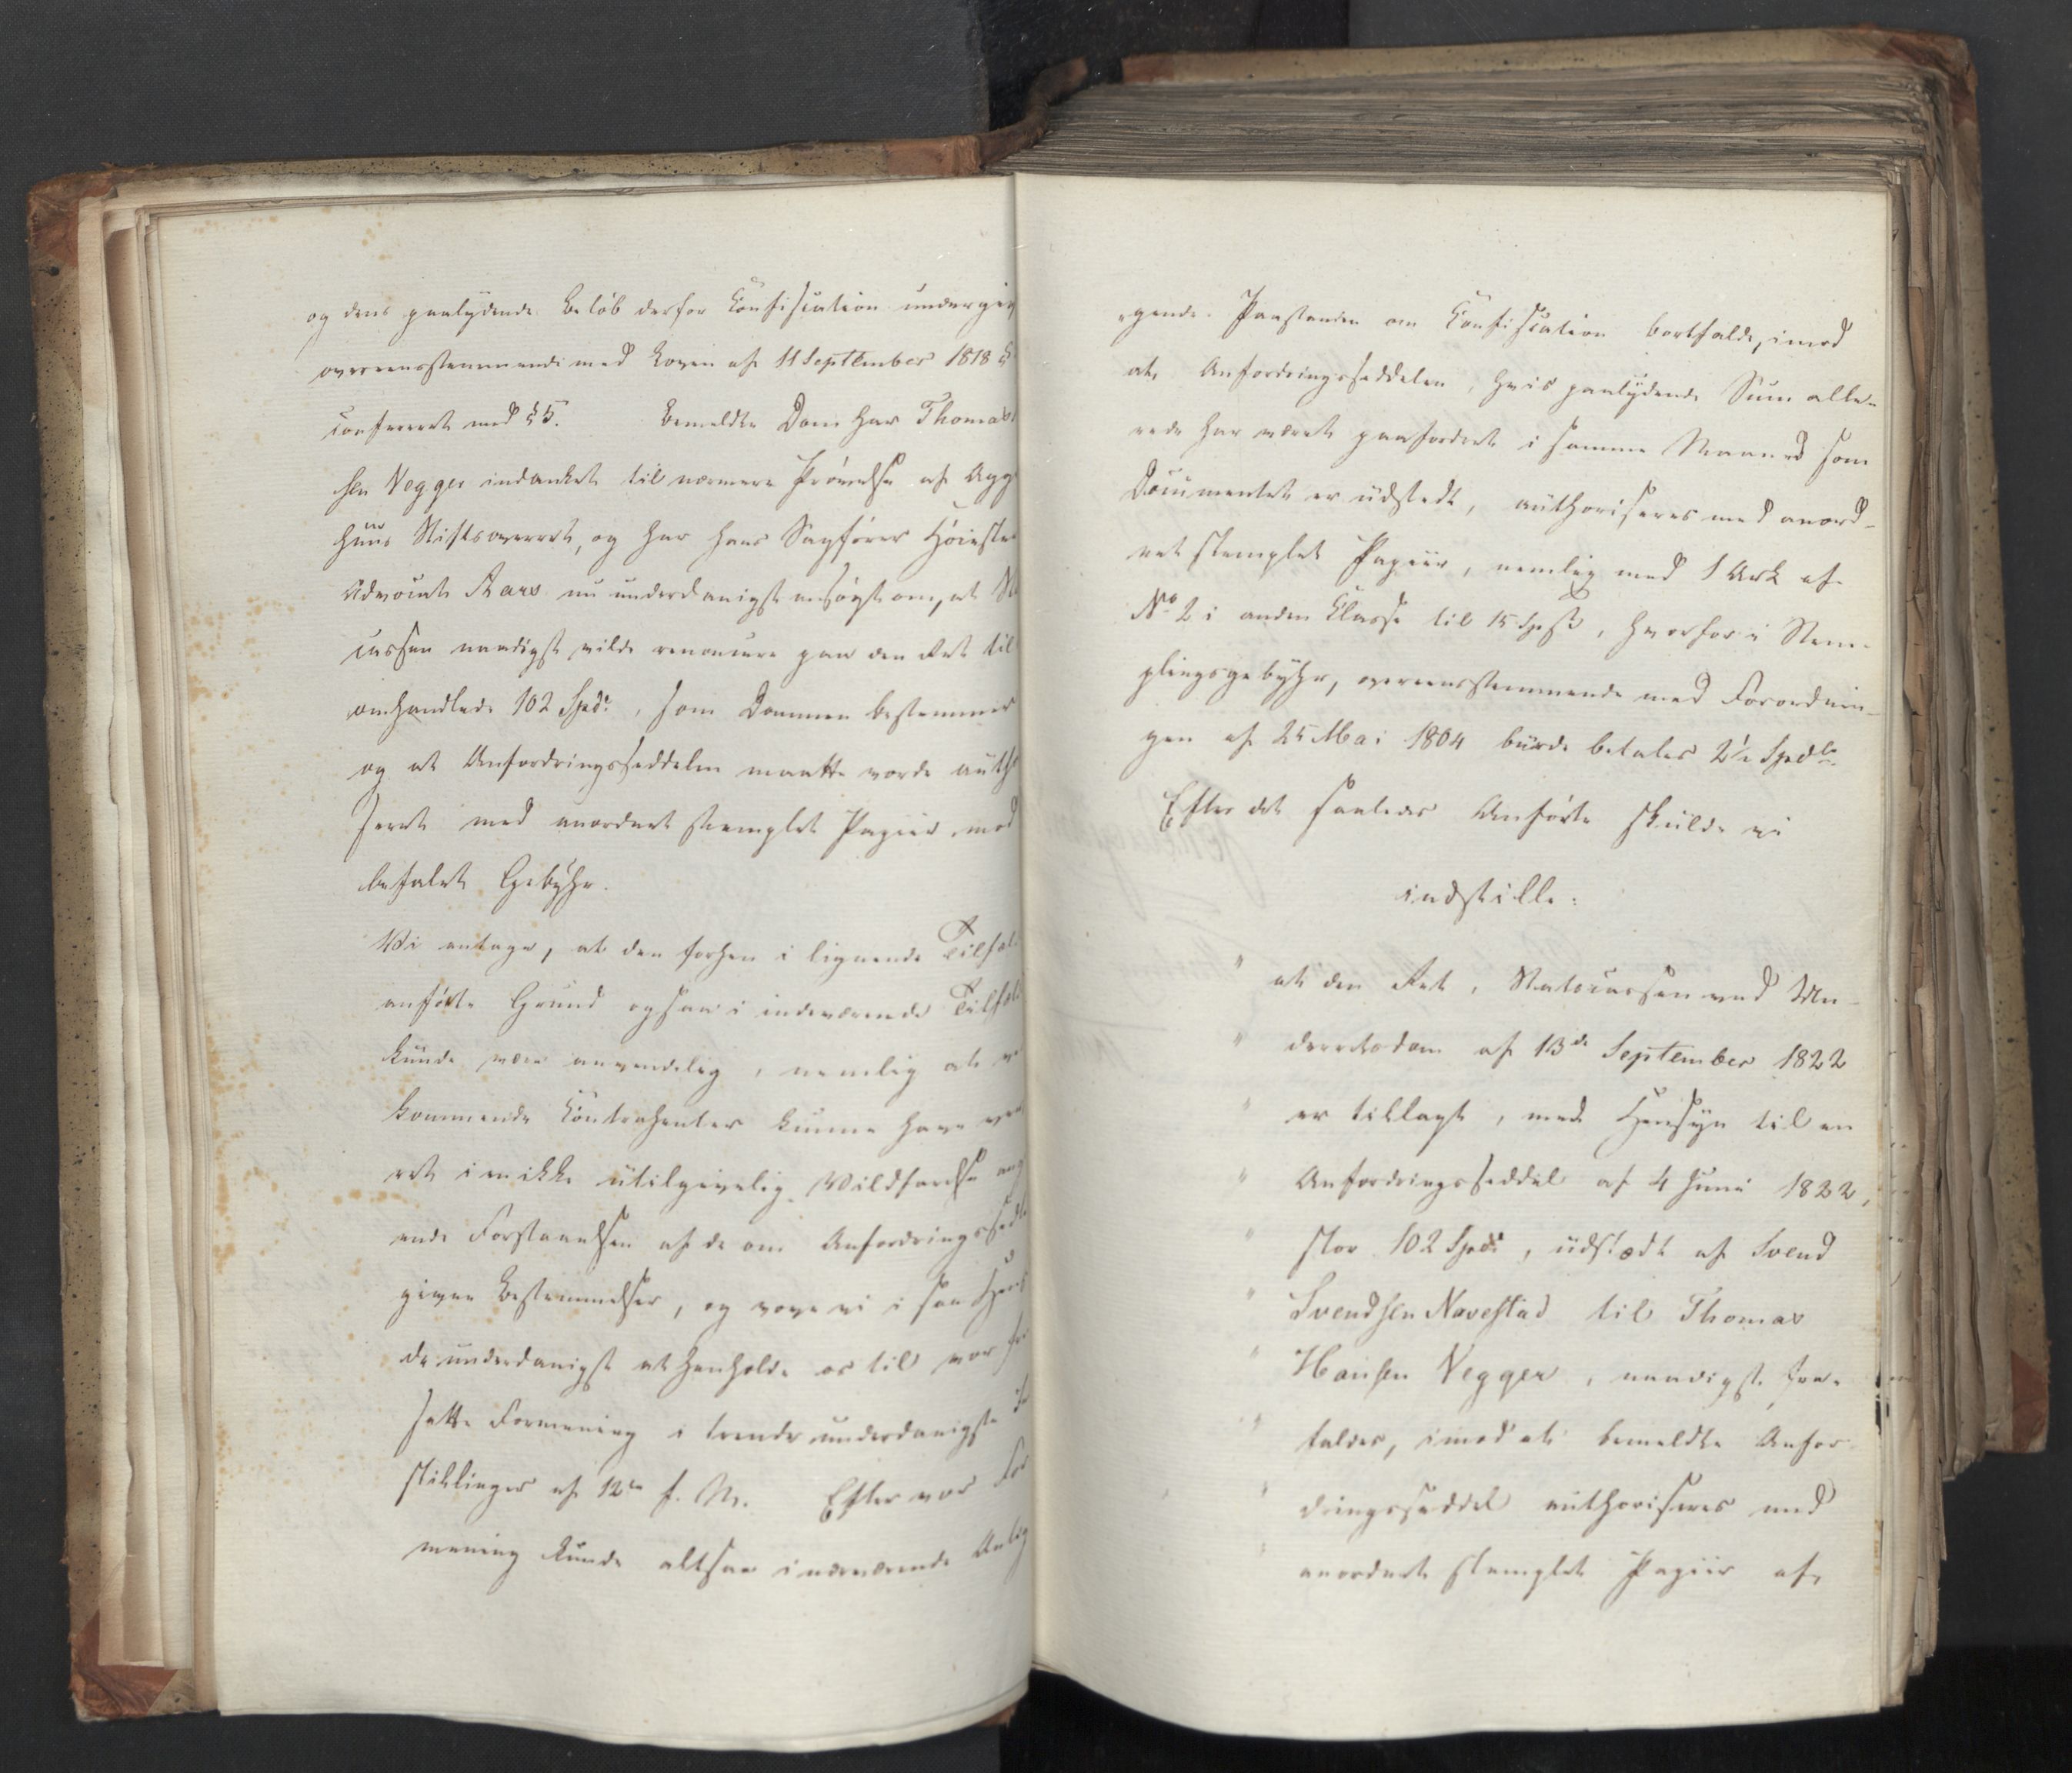 og dens paalydende Beløb derfor Confiscation undergiv
overeensstemmende med Loven af 11 September 1818 §
confereret med § 5. Bemeldte Dom har Thomas
sen Vegger indanket til nærmere Prøvelse af Agg
huus Stiftsoverret, og har hans Sagfører Høieste
Advocat Aars nu underdanigst ansøgt om, at St
cassen naadigst vilde renoncere paa den Ret til
omhandlede 102 Spd., som Dommen bestemmer
og at Anfordringsseddelen maatte vorde autho
seret med anordnet stemplet Papiir mod
befalet Gebyhr.
Vi antage, at den forhen i lignende Tilfæl
anførte Grund ogsaa i indeværende Tilfæl
kunde være anvendelig, nemlig at ve
kommende Contrahenter kunne have væ
ret i en ikke utilgivelig Vildfarelse ang
ende Forstaaelsen af de om Anfordringssedl
givne Bestemmelser, og vove vi i saa Hen
de underdanigst at henholde os til vor fr
satte Formening i trende underdanigste In
stillinger af 12te f. M. Efter vor For
mening kunde altsaa i nærværende Anlig
gende Paastanden om Confiscation bortfalde, imod
at Anfordringsseddelen, hvis paalydende Sum alle-
rede har været paafordret i samme Maaned som
Documentet er udstedt, authoriseres med anord-
net stemplet Papiir, nemlig med 1 Ark af
No 2 i anden Classe til 15 Sp ß, hvorfor i Stem-
plingsgebyhr, overeensstemmende med Forordnin-
gen af 25 Mai 1804 burde betales 2½ Spdlr
Efter det saaledes Anførte skulde vi
indstille:
" at den Ret, Statscassen ved Un-
" derretsdom af 13de September 1822
" er tillagt, med Hensyn til en
" Anfordringsseddel af 4 Juni 1822,
" stor 102 Spd., udstædt af Svend
" Svendsen Navestad til Thomas
" Hansen Vegger, naadigst fra-
" faldes, imod at bemeldte Anfor
" dringsseddel authoriseres med
" anordnet stemplet Papiir af